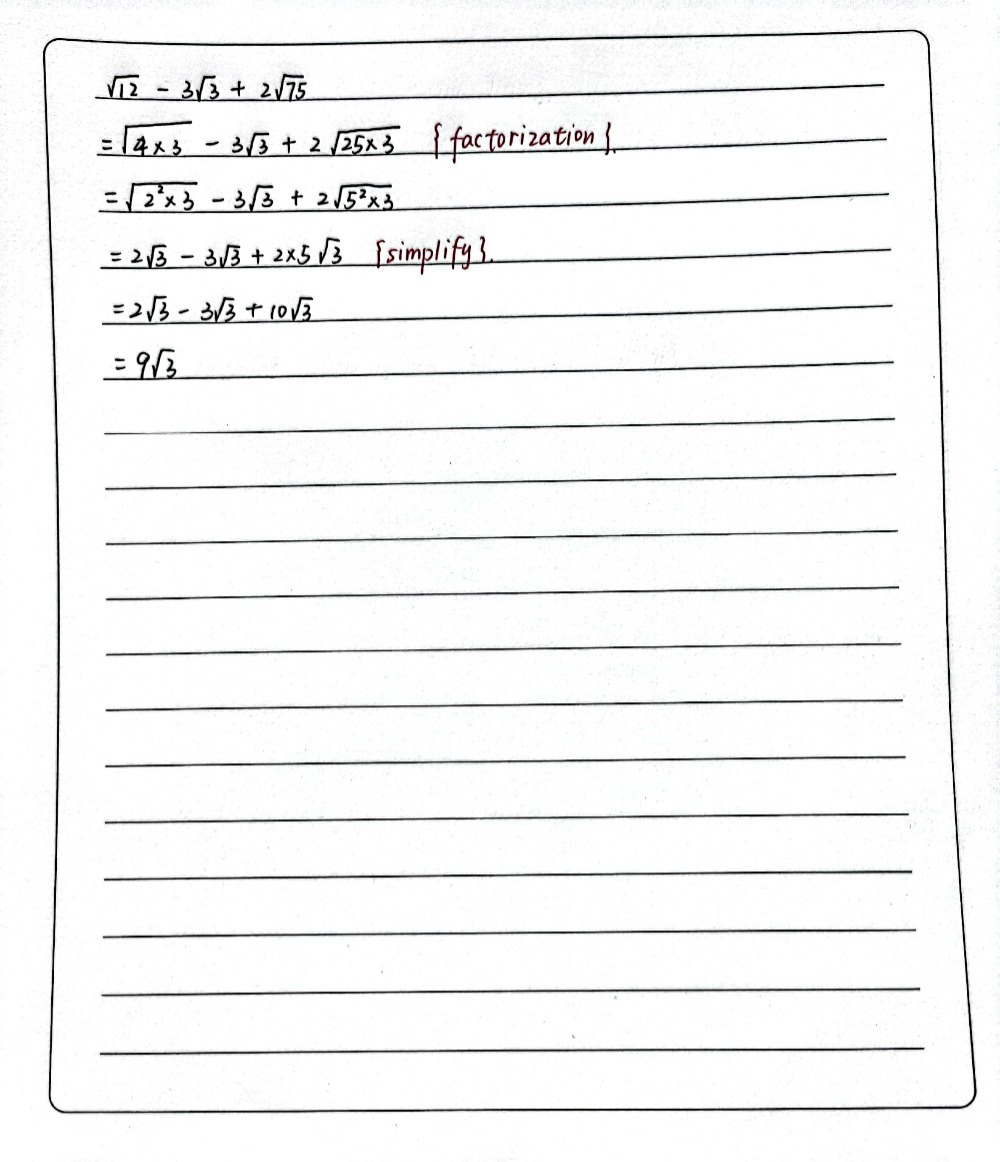 √12 - 3√3 + 2√75
= √4×3 - 3√3 + 2√25×3 {factorization}.
= √2²×3 - 3√3 + 2√5²×3
= 2√3 - 3√3 + 2×5√3 {simplify}.
= 2√3 - 3√3 + 10√3
= 9√3